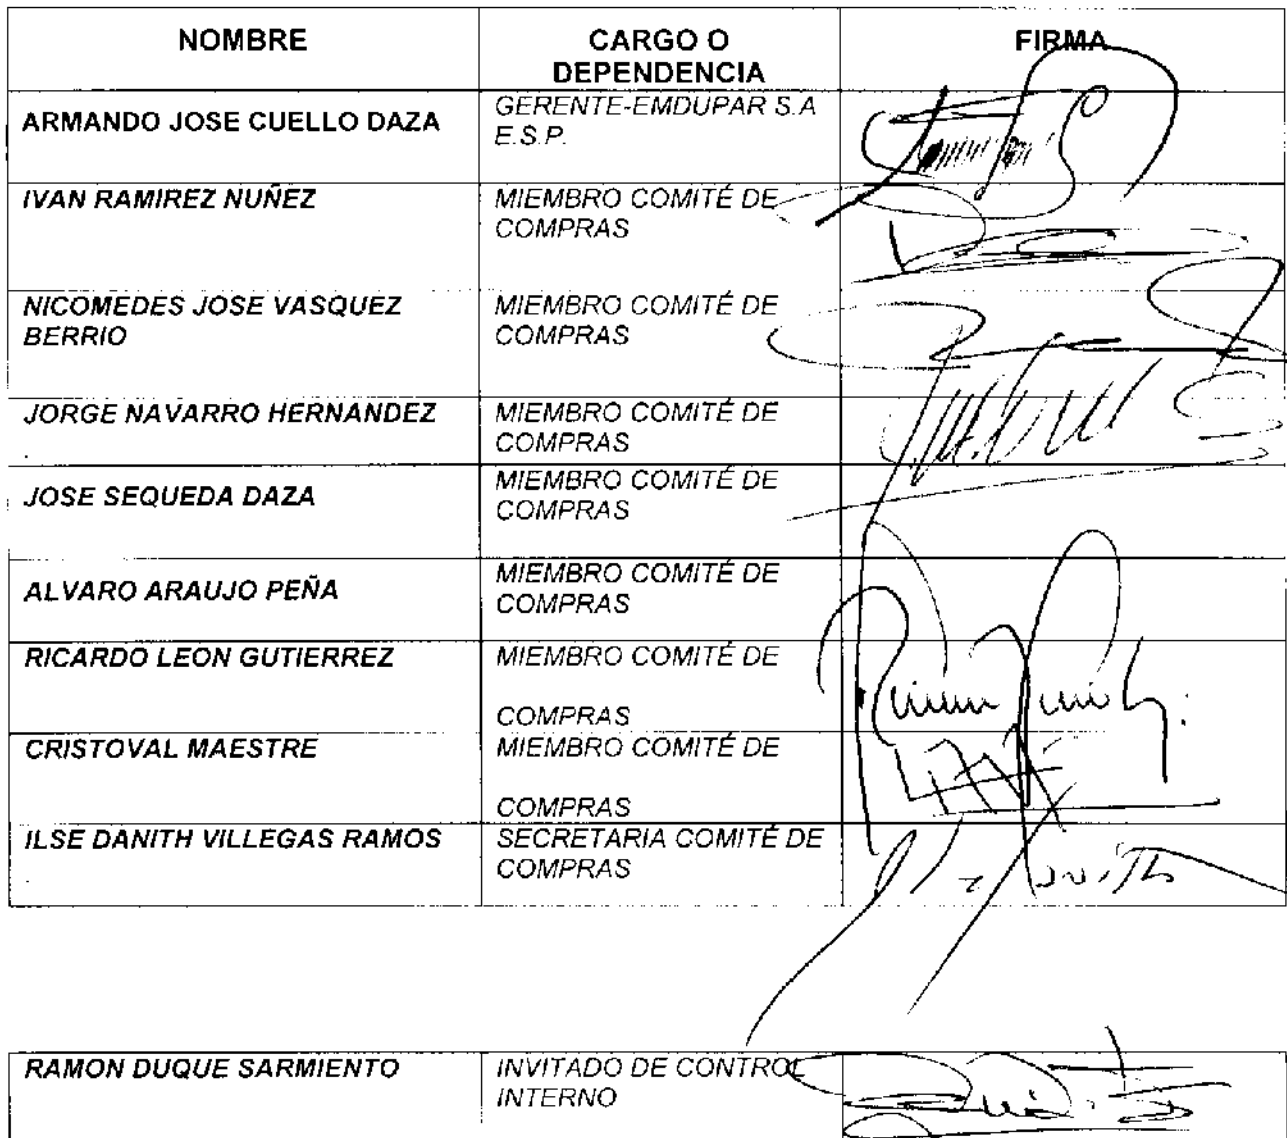 NOMBRE CARGO O FIRMA
DEPENDENCIA
ARMANDO JOSE CUELLO DAZA GERENTE-EMDUPAR S.A
E.S.P.
IVAN RAMIREZ NUÑEZ MIEMBRO COMITÉ DE
COMPRAS
NICOMEDES JOSE VASQUEZ MIEMBRO COMITÉ DE
BERRIO COMPRAS
JORGE NAVARRO HERNANDEZ MIEMBRO COMITÉ DE
COMPRAS
JOSE SEQUEDA DAZA MIEMBRO COMITÉ DE
COMPRAS
ALVARO ARAUJO PEÑA MIEMBRO COMITÉ DE
COMPRAS
RICARDO LEON GUTIERREZ MIEMBRO COMITÉ DE
COMPRAS
CRISTOVAL MAESTRE MIEMBRO COMITÉ DE
COMPRAS
ILSE DANITH VILLEGAS RAMOS SECRETARIA COMITÉ DE
COMPRAS
RAMON DUQUE SARMIENTO INVITADO DE CONTROL
INTERNO